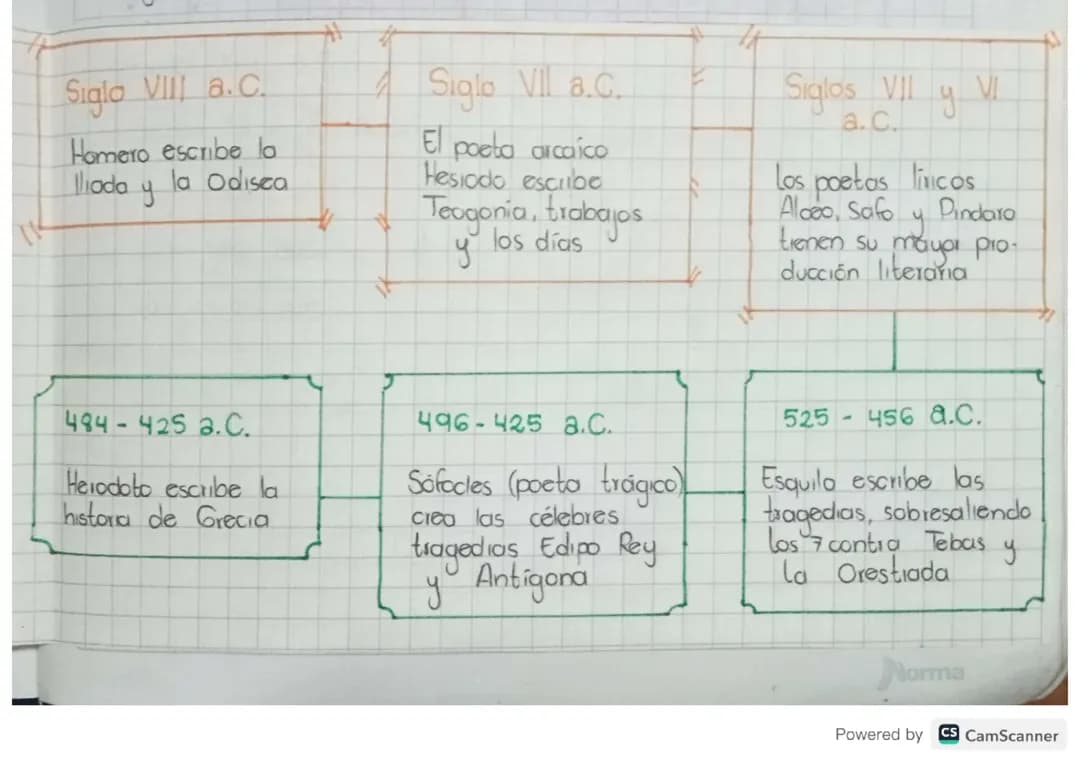 Siglo VIII a.C.
Homero escribe la
Iliada y la Odisea
Siglo VII a.C.
El poeta arcaico
Hesiodo escribe
Teogonia, trabajos
y los días
Siglos VII y VI
a.C.
Los poetas líricos
Alceo, Safo y Pindaro
tienen su mayor pro-
ducción literaria
484 - 425 a.C.
Herodoto escribe la
histora de Grecia
496 - 425 a.C.
Sófocles (poeta trágico)
crea las célebres
tragedias Edipo Rey
y Antígona
525 - 456 a.C.
Esquilo escribe las
tragedias, sobresaliendo
los 7 contra Tebas y
la Orestiada
Norma
Powered by CS CamScanner